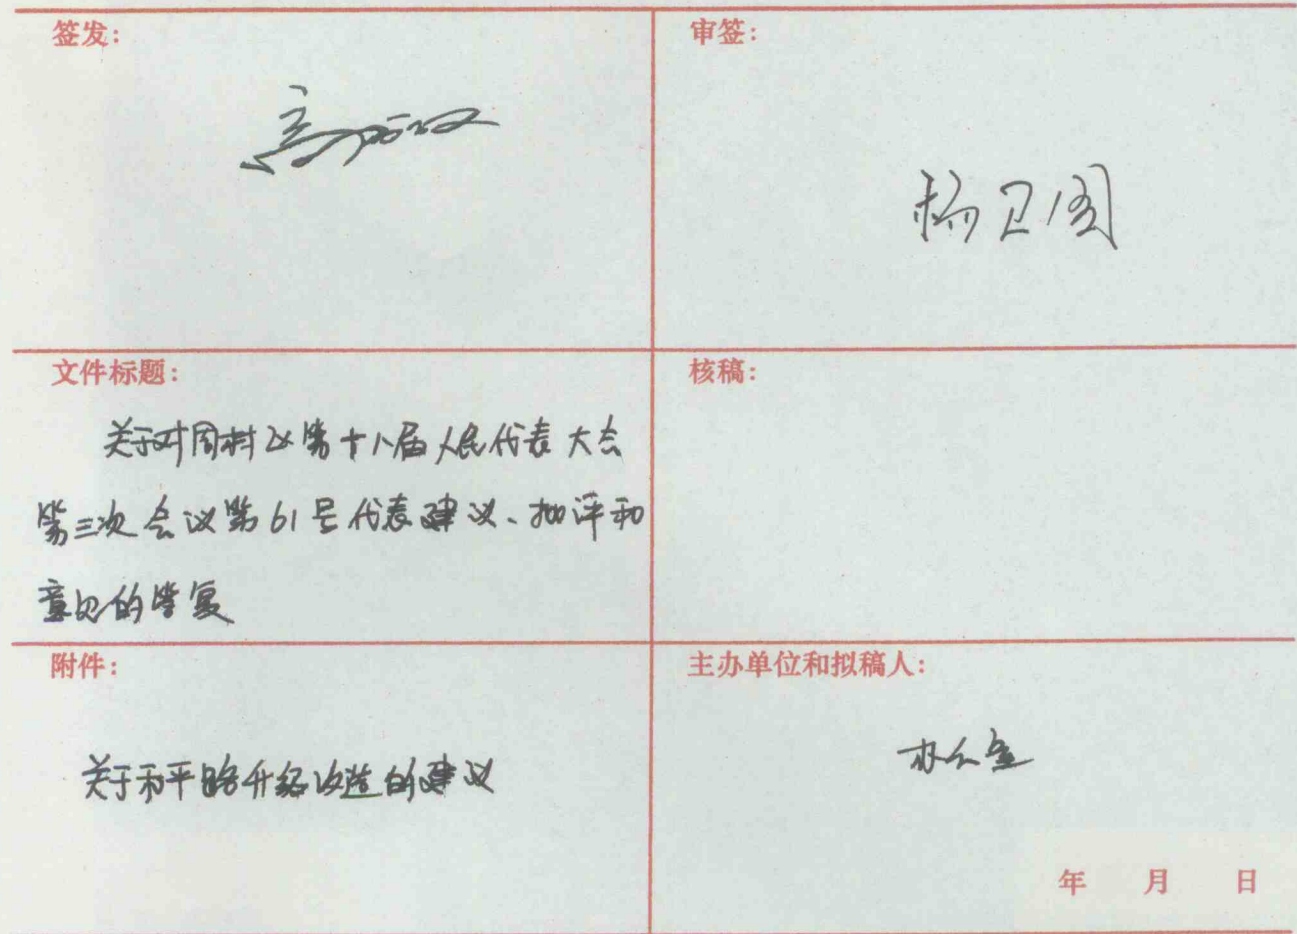 签发：
审签：
杨卫国
文件标题：
关于对周村区第十八届人民代表大会
第三次会议第61号代表建议、批评和
意见的答复
核稿：
附件：
关于和平路升级改造的建议
主办单位和拟稿人：
办公室
年 月 日